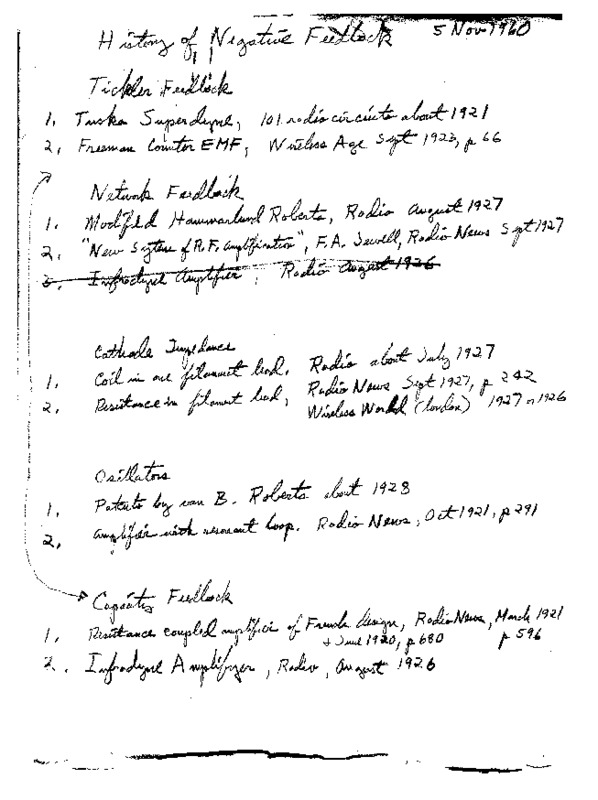 History of Negative Feedback 5 Nov 1960
Tickler Feedback
1. Tuska Superdyne, 101 radio circuits about 1921
2. Freeman Counter EMF, Wireless Age Sept 1923, p 66
Network Feedback
1. Modified Hammarlund Roberts, Radio August 1927
2. "New System of R.F. Amplification", F.A. Jewell, Radio News Sept 1927
3. Infradyne Amplifier, Radio August 1926
Cathode Impedance
1. Coil in one filament lead. Radio about July 1927
Radio News Sept 1927, p 242
2. Resistance in filament lead, Wireless World (London) 1927 or 1926
Oscillators
1. Patents by van B. Roberts about 1928
2. Amplifier with resonant loop. Radio News, Oct 1921, p 291
Capacity Feedback
1. Resistance coupled amplifier of French design, Radio News, March 1921
+ June 1920, p 680 p 596
2. Infradyne Amplifyer, Radio, August 1926